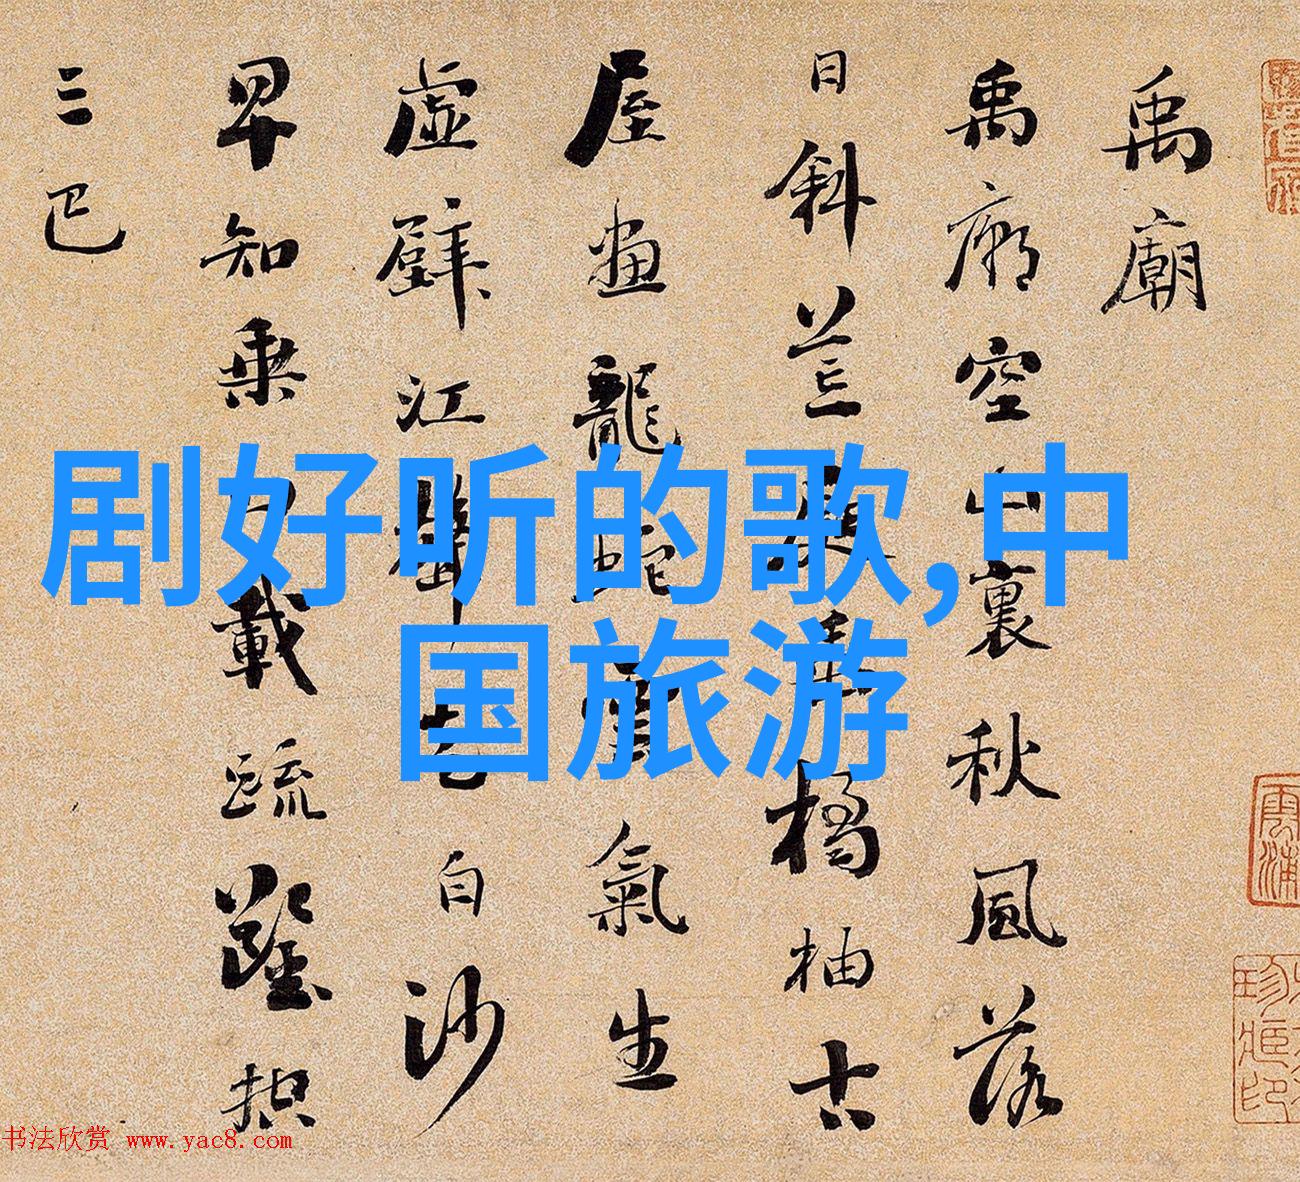 禹廟
禹廟空山裏秋風落
日斜荒庭垂橘柚古
屋畫龍蛇雲氣生
虛壁江聲走白沙
早知乘四載疏鑿控
三巴
剧好听的歌,中
国旅游
书法欣赏 www.yac8.com